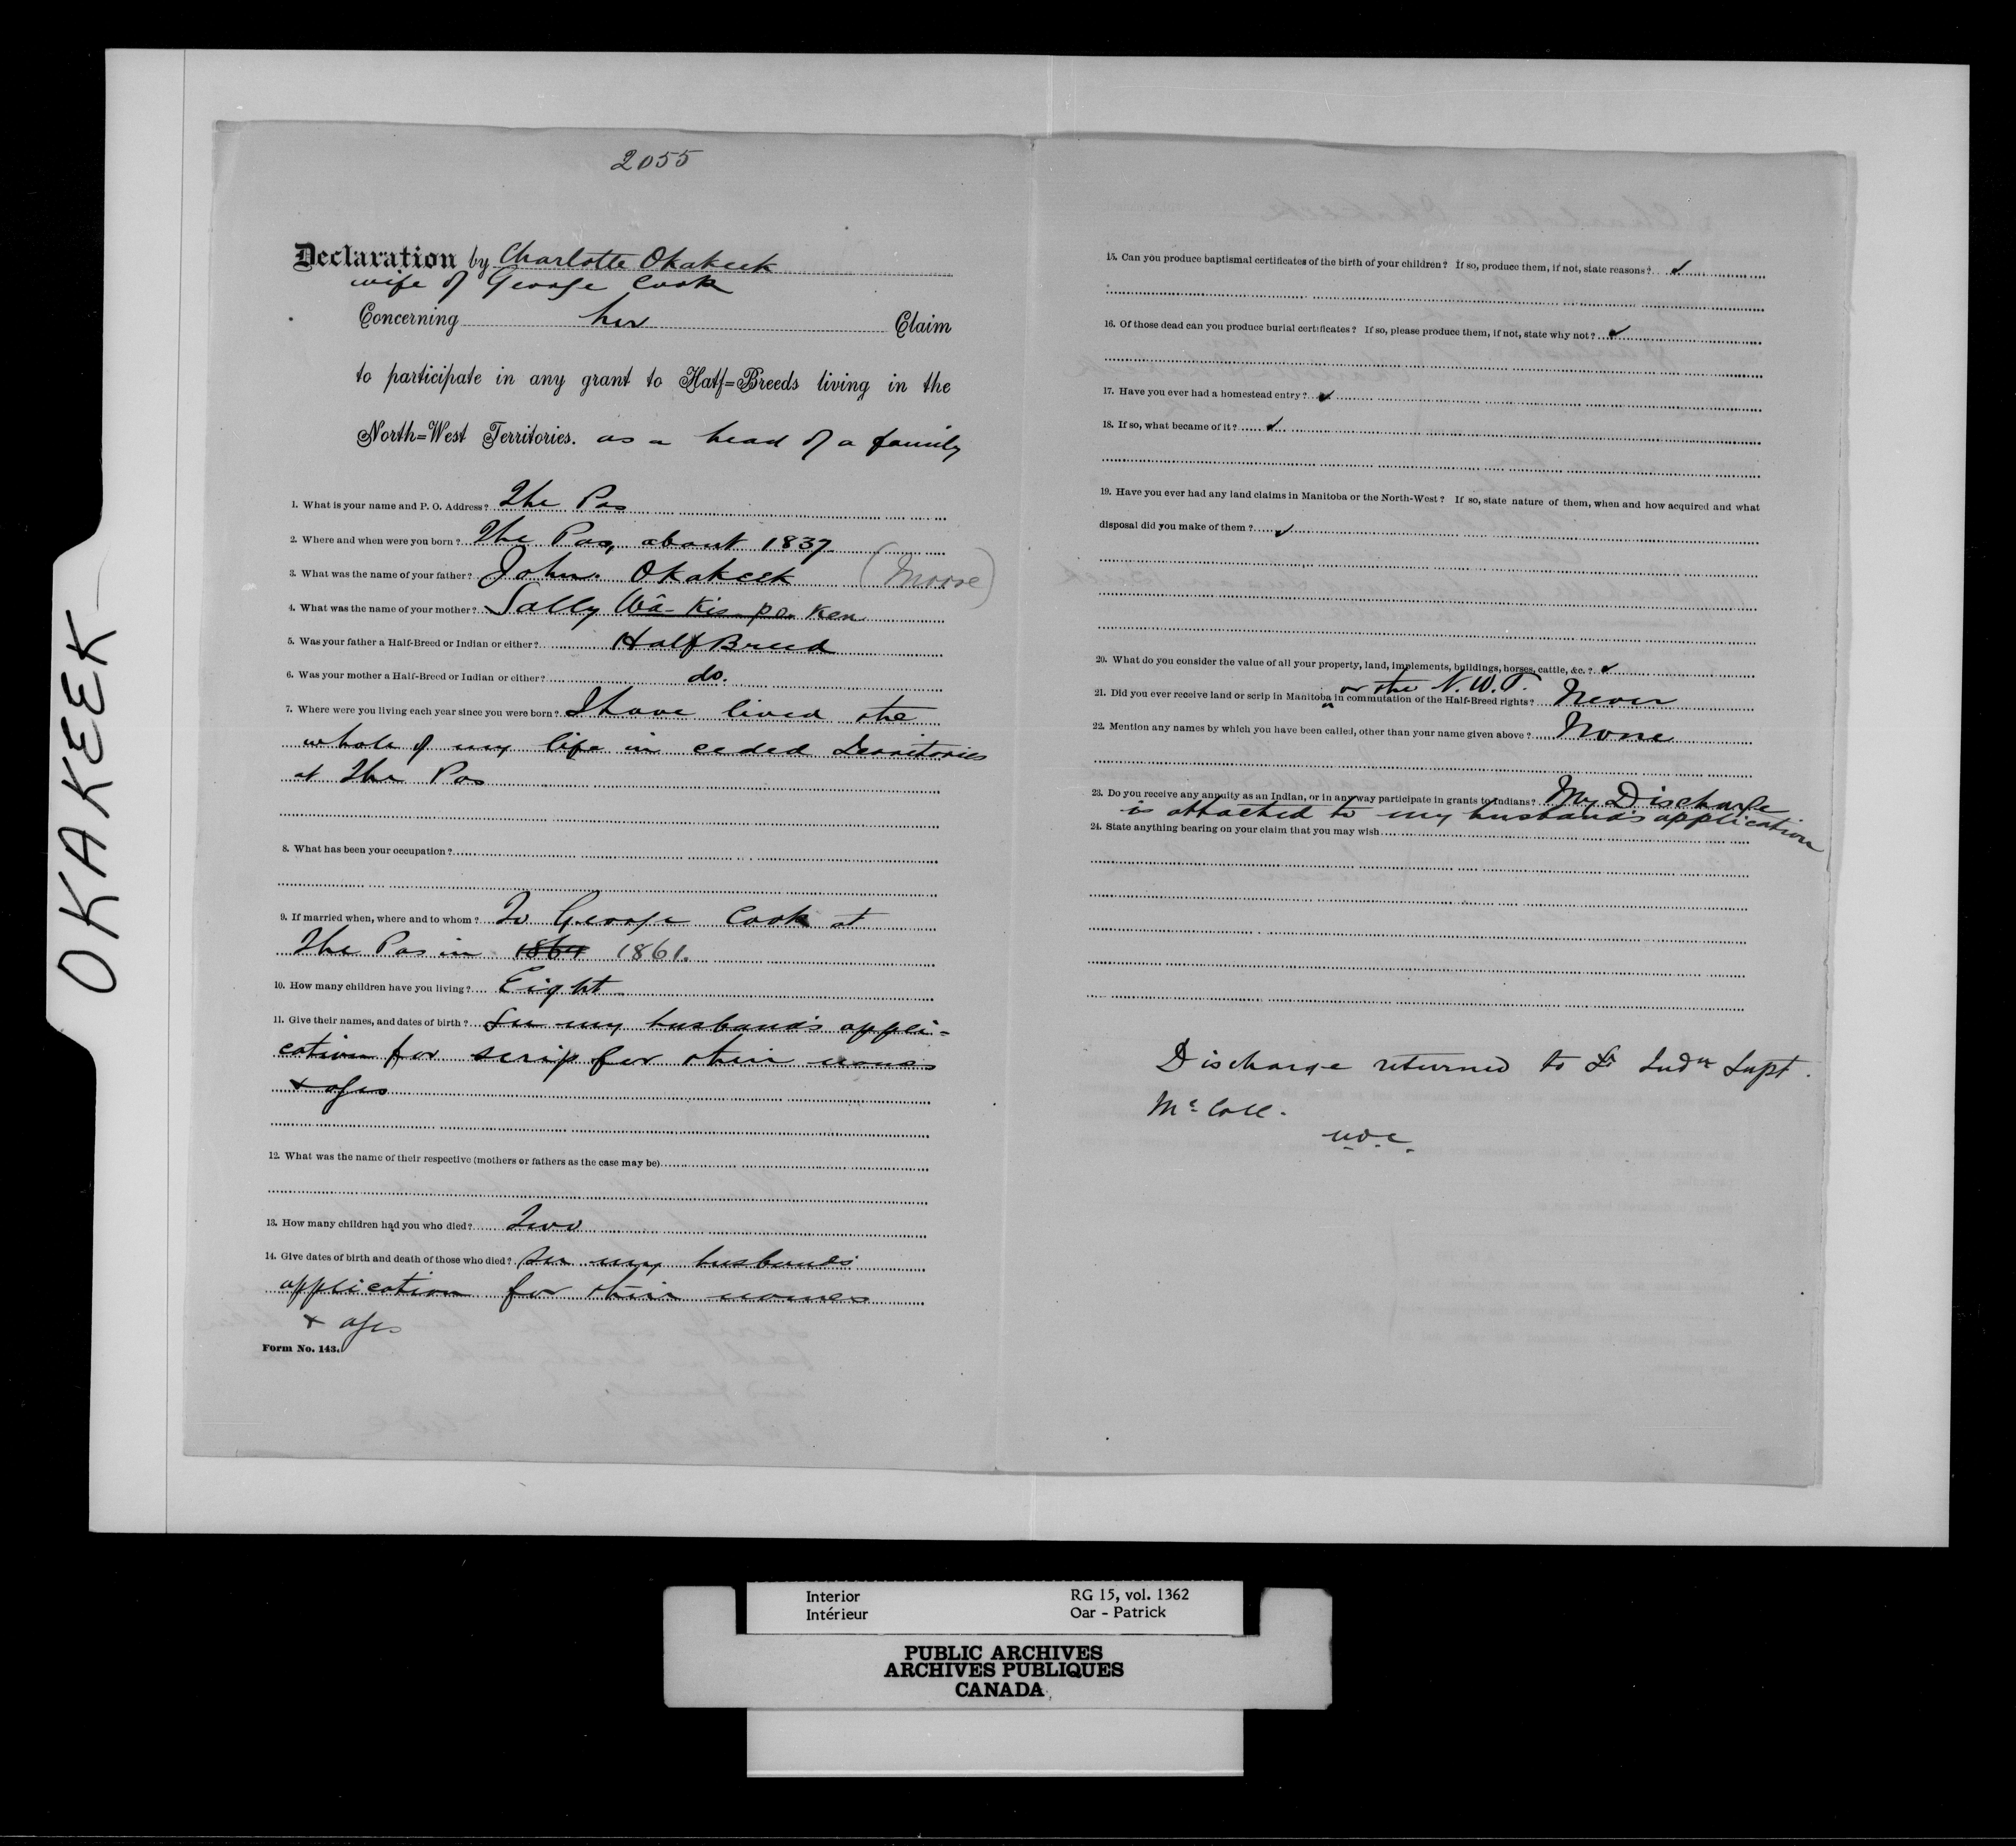 OKAKEEK
2055
Declaration by Charlotte Okakeek
wife of George Cook
Concerning her Claim
to participate in any grant to Half=Breeds living in the
North=West Territories. as a head of a family
1. What is your name and P. O. Address? The Pas
2. Where and when were you born? The Pas, about 1837.
3. What was the name of your father? John Okakeek (Moore)
4. What was the name of your mother? Sally Wâ-Kis-pa-Ken
5. Was your father a Half-Breed or Indian or either? Half Breed
6. Was your mother a Half-Breed or Indian or either? do.
7. Where were you living each year since you were born? I have lived the
whole of my life in ceded Territories
at The Pas
8. What has been your occupation?
9. If married when, where and to whom? To George Cook at
The Pas in 1864 1861.
10. How many children have you living? Eight
11. Give their names, and dates of birth? See my husband's appli-
cation for scrip for their names
+ ages
12. What was the name of their respective (mothers or fathers as the case may be)
13. How many children had you who died? Two
14. Give dates of birth and death of those who died? See my husbands
application for their names
+ ages
Form No. 143.
15. Can you produce baptismal certificates of the birth of your children? If so, produce them, if not, state reasons?
16. Of those dead can you produce burial certificates? If so, please produce them, if not, state why not?
17. Have you ever had a homestead entry?
18. If so, what became of it?
19. Have you ever had any land claims in Manitoba or the North-West? If so, state nature of them, when and how acquired and what
disposal did you make of them?
20. What do you consider the value of all your property, land, implements, buildings, horses, cattle, &c.?
or the N.W.T.
21. Did you ever receive land or scrip in Manitoba in commutation of the Half-Breed rights? Never
22. Mention any names by which you have been called, other than your name given above? None
23. Do you receive any annuity as an Indian, or in any way participate in grants to Indians? My Discharge
is attached to my husband's application
24. State anything bearing on your claim that you may wish
Discharge returned to Indn Supt.
McColl.
Interior
Intérieur
RG 15, vol. 1362
Oar - Patrick
PUBLIC ARCHIVES
ARCHIVES PUBLIQUES
CANADA